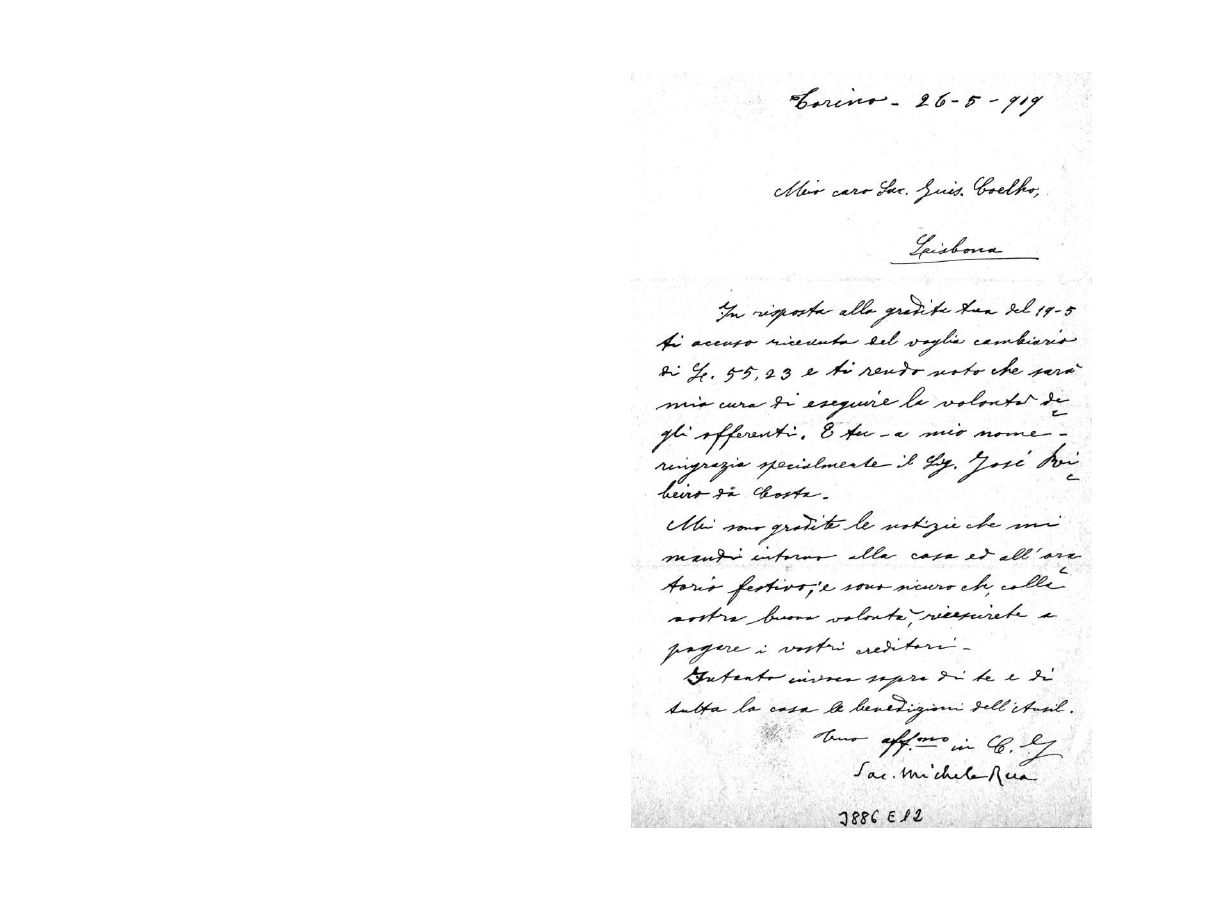 Torino - 26-5-909
Mio caro Sac. Gius. Coelho,
Lisbona
In risposta alla gradita tua del 19-5
ti accuso ricevuta del vaglia cambiario
di L. 55,23 e ti rendo noto che sarà
mia cura di eseguire la volontà de
gli offerenti. E tu - a mio nome -
ringrazia specialmente il Sig. José Ri
beiro da Costa.
Mi sono gradite le notizie che mi
mandi intorno alla casa ed all'ora
torio festivo; e sono sicuro ch, colla
vostra buona volontà, riescirete a
pagare i vostri creditori -
Intanto invoco sopra di te e di
tutta la casa le benedizioni dell'Ausil.
Tuo aff.mo in C. J
Sac. Michele Rua
3886 E12